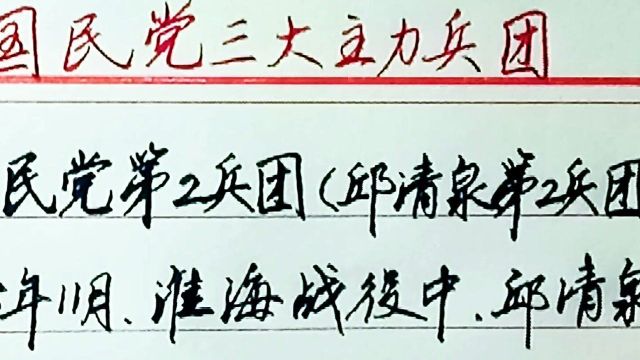 国民党三大主力兵团
民党第2兵团(邱清泉第2兵团
年11月、淮海战役中、邱清泉